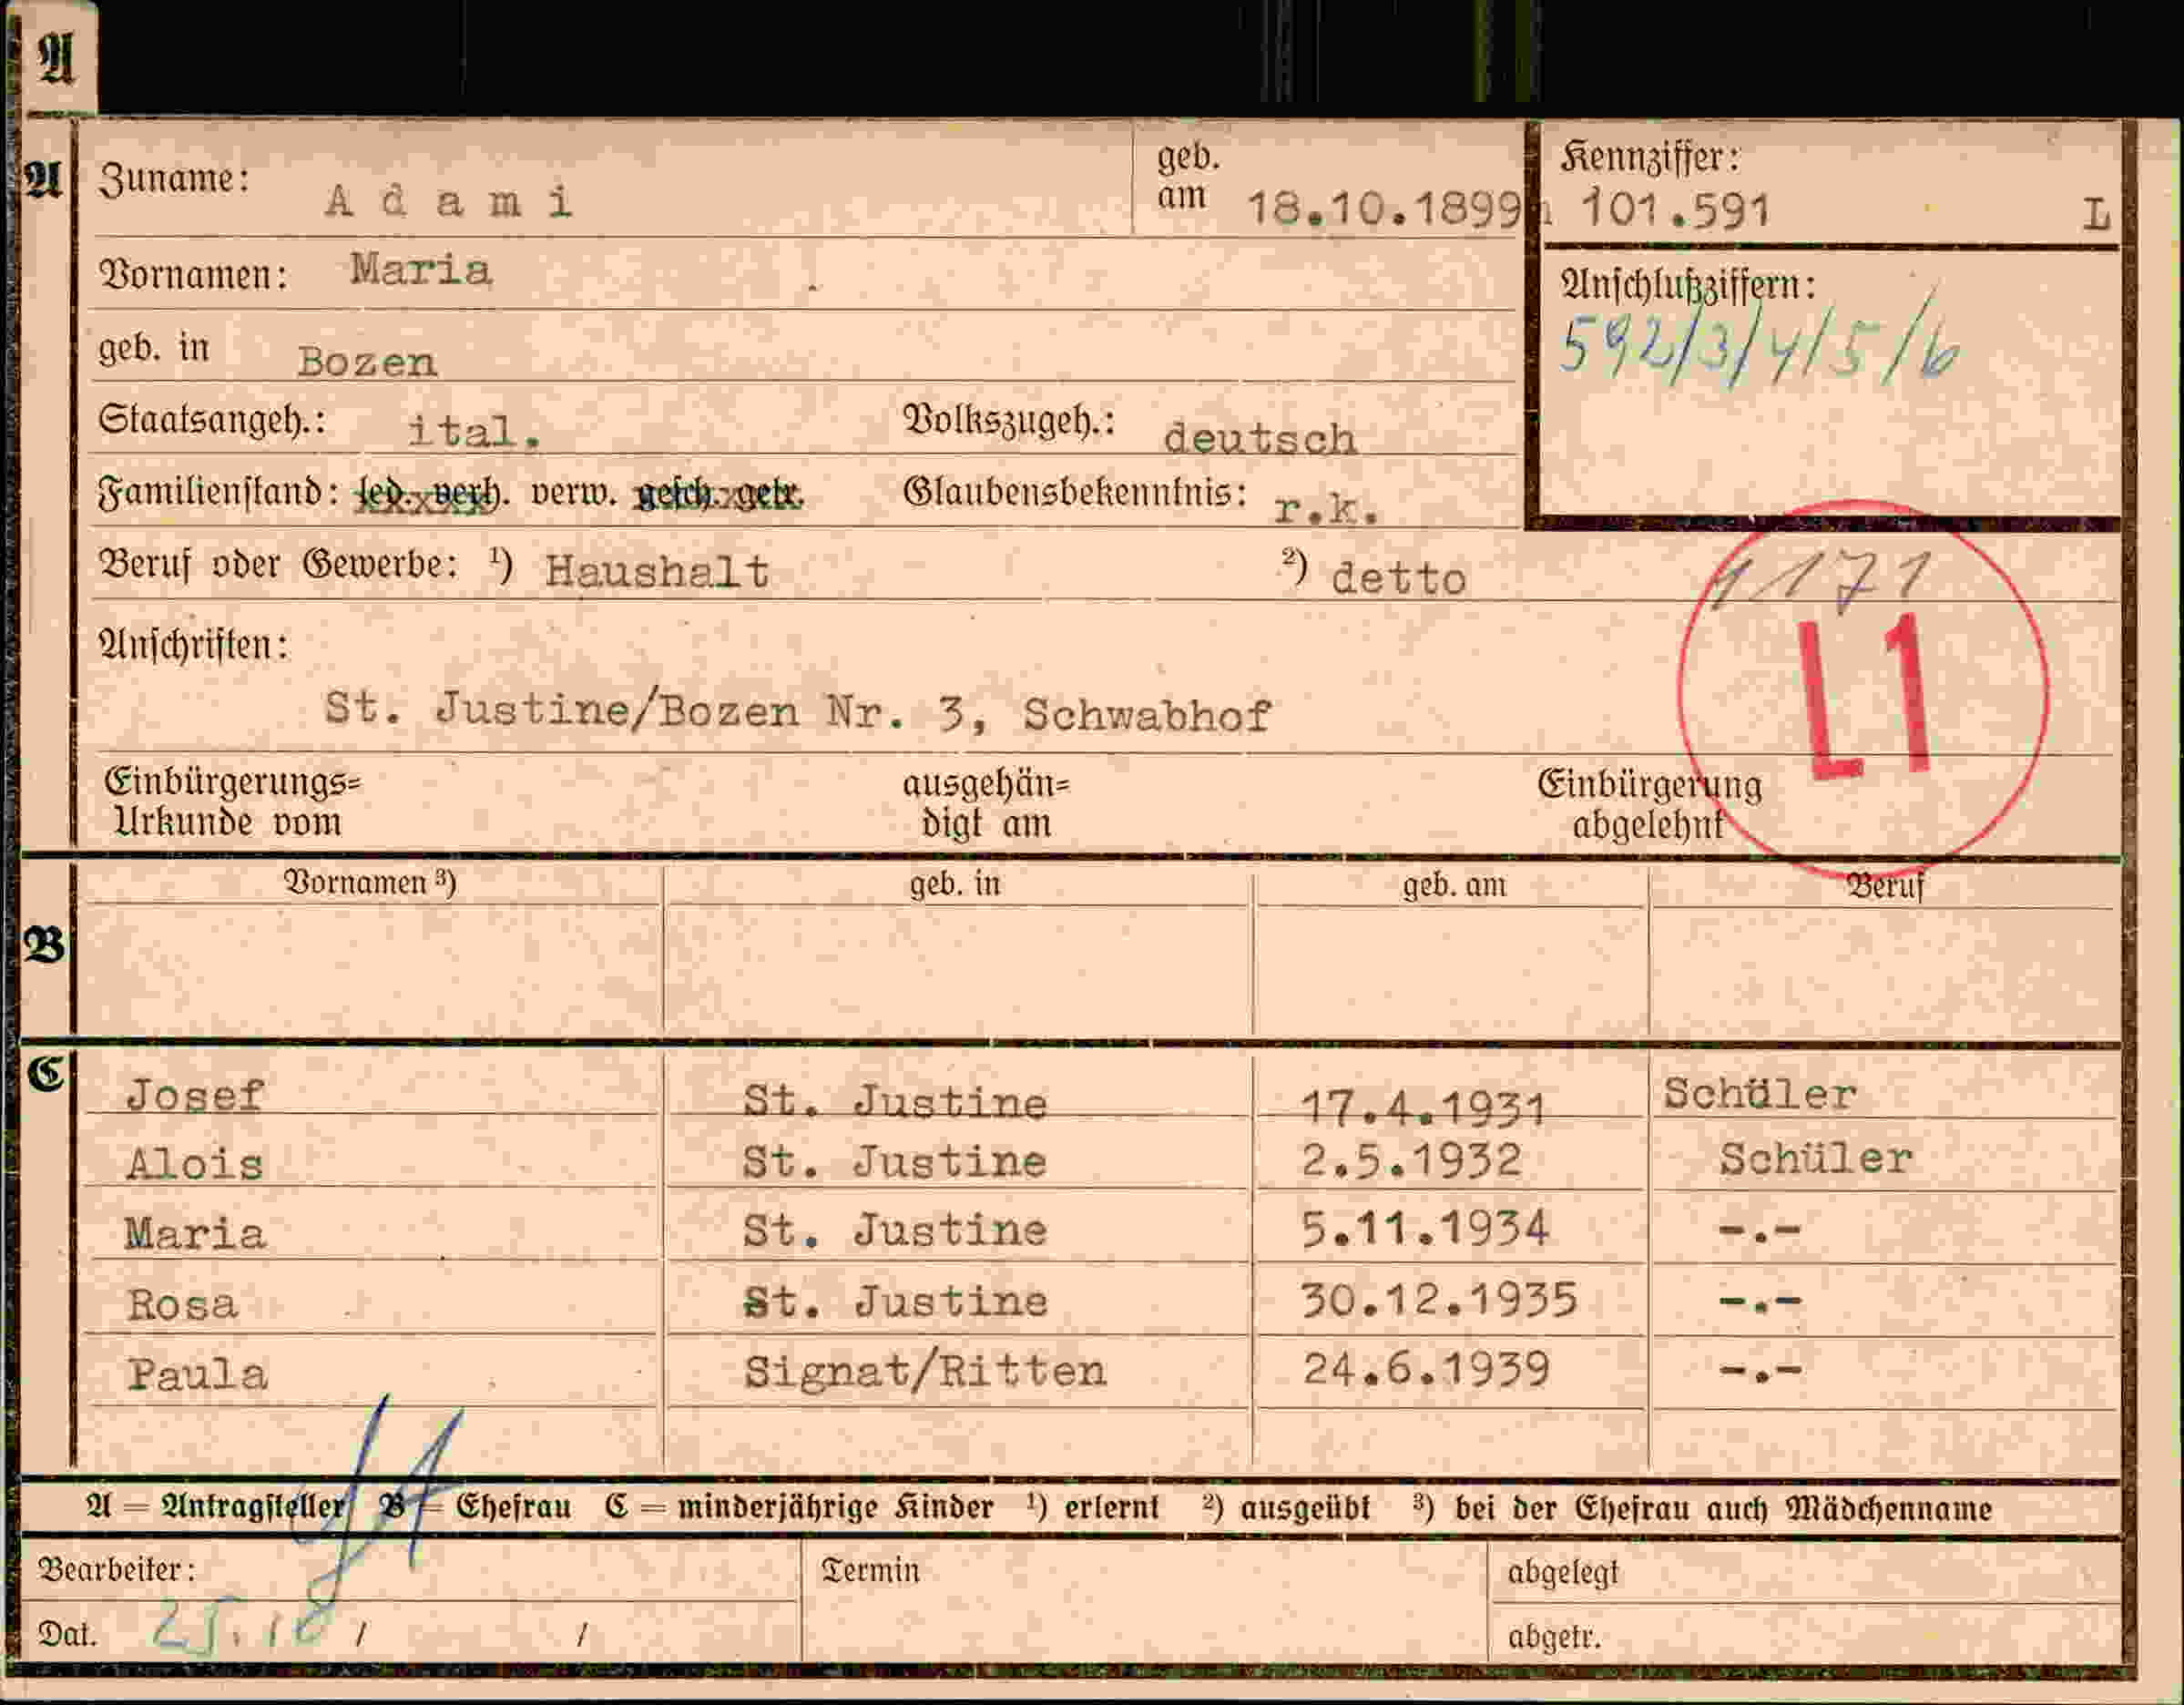 A
A
Zuname: Adami
geb. am 18.10.1899
Kennziffer:
101.591 L
Vornamen: Maria
Anschlußziffern:
592/3/4/5/6
geb. in Bozen
Staatsangeh.: ital. Volkszugeh.: deutsch
Familienstand: led. verh. verw. gesch. getr. Glaubensbekenntnis: r.k.
Beruf oder Gewerbe: ¹) Haushalt ²) detto
1171
Anschriften:
L1
St. Justine/Bozen Nr. 3, Schwabhof
Einbürgerungs= ausgehän= Einbürgerung
Urkunde vom digt am abgelehnt
Vornamen ³) geb. in geb. am Beruf
B
C
Josef St. Justine 17.4.1931 Schüler
Alois St. Justine 2.5.1932 Schüler
Maria St. Justine 5.11.1934 -.-
Rosa St. Justine 30.12.1935 -.-
Paula Signat/Ritten 24.6.1939 -.-
A = Antragsteller B = Ehefrau C = minderjährige Kinder ¹) erlernt ²) ausgeübt ³) bei der Ehefrau auch Mädchenname
Bearbeiter: Termin abgelegt
Dat. 25.10 / / abgetr.